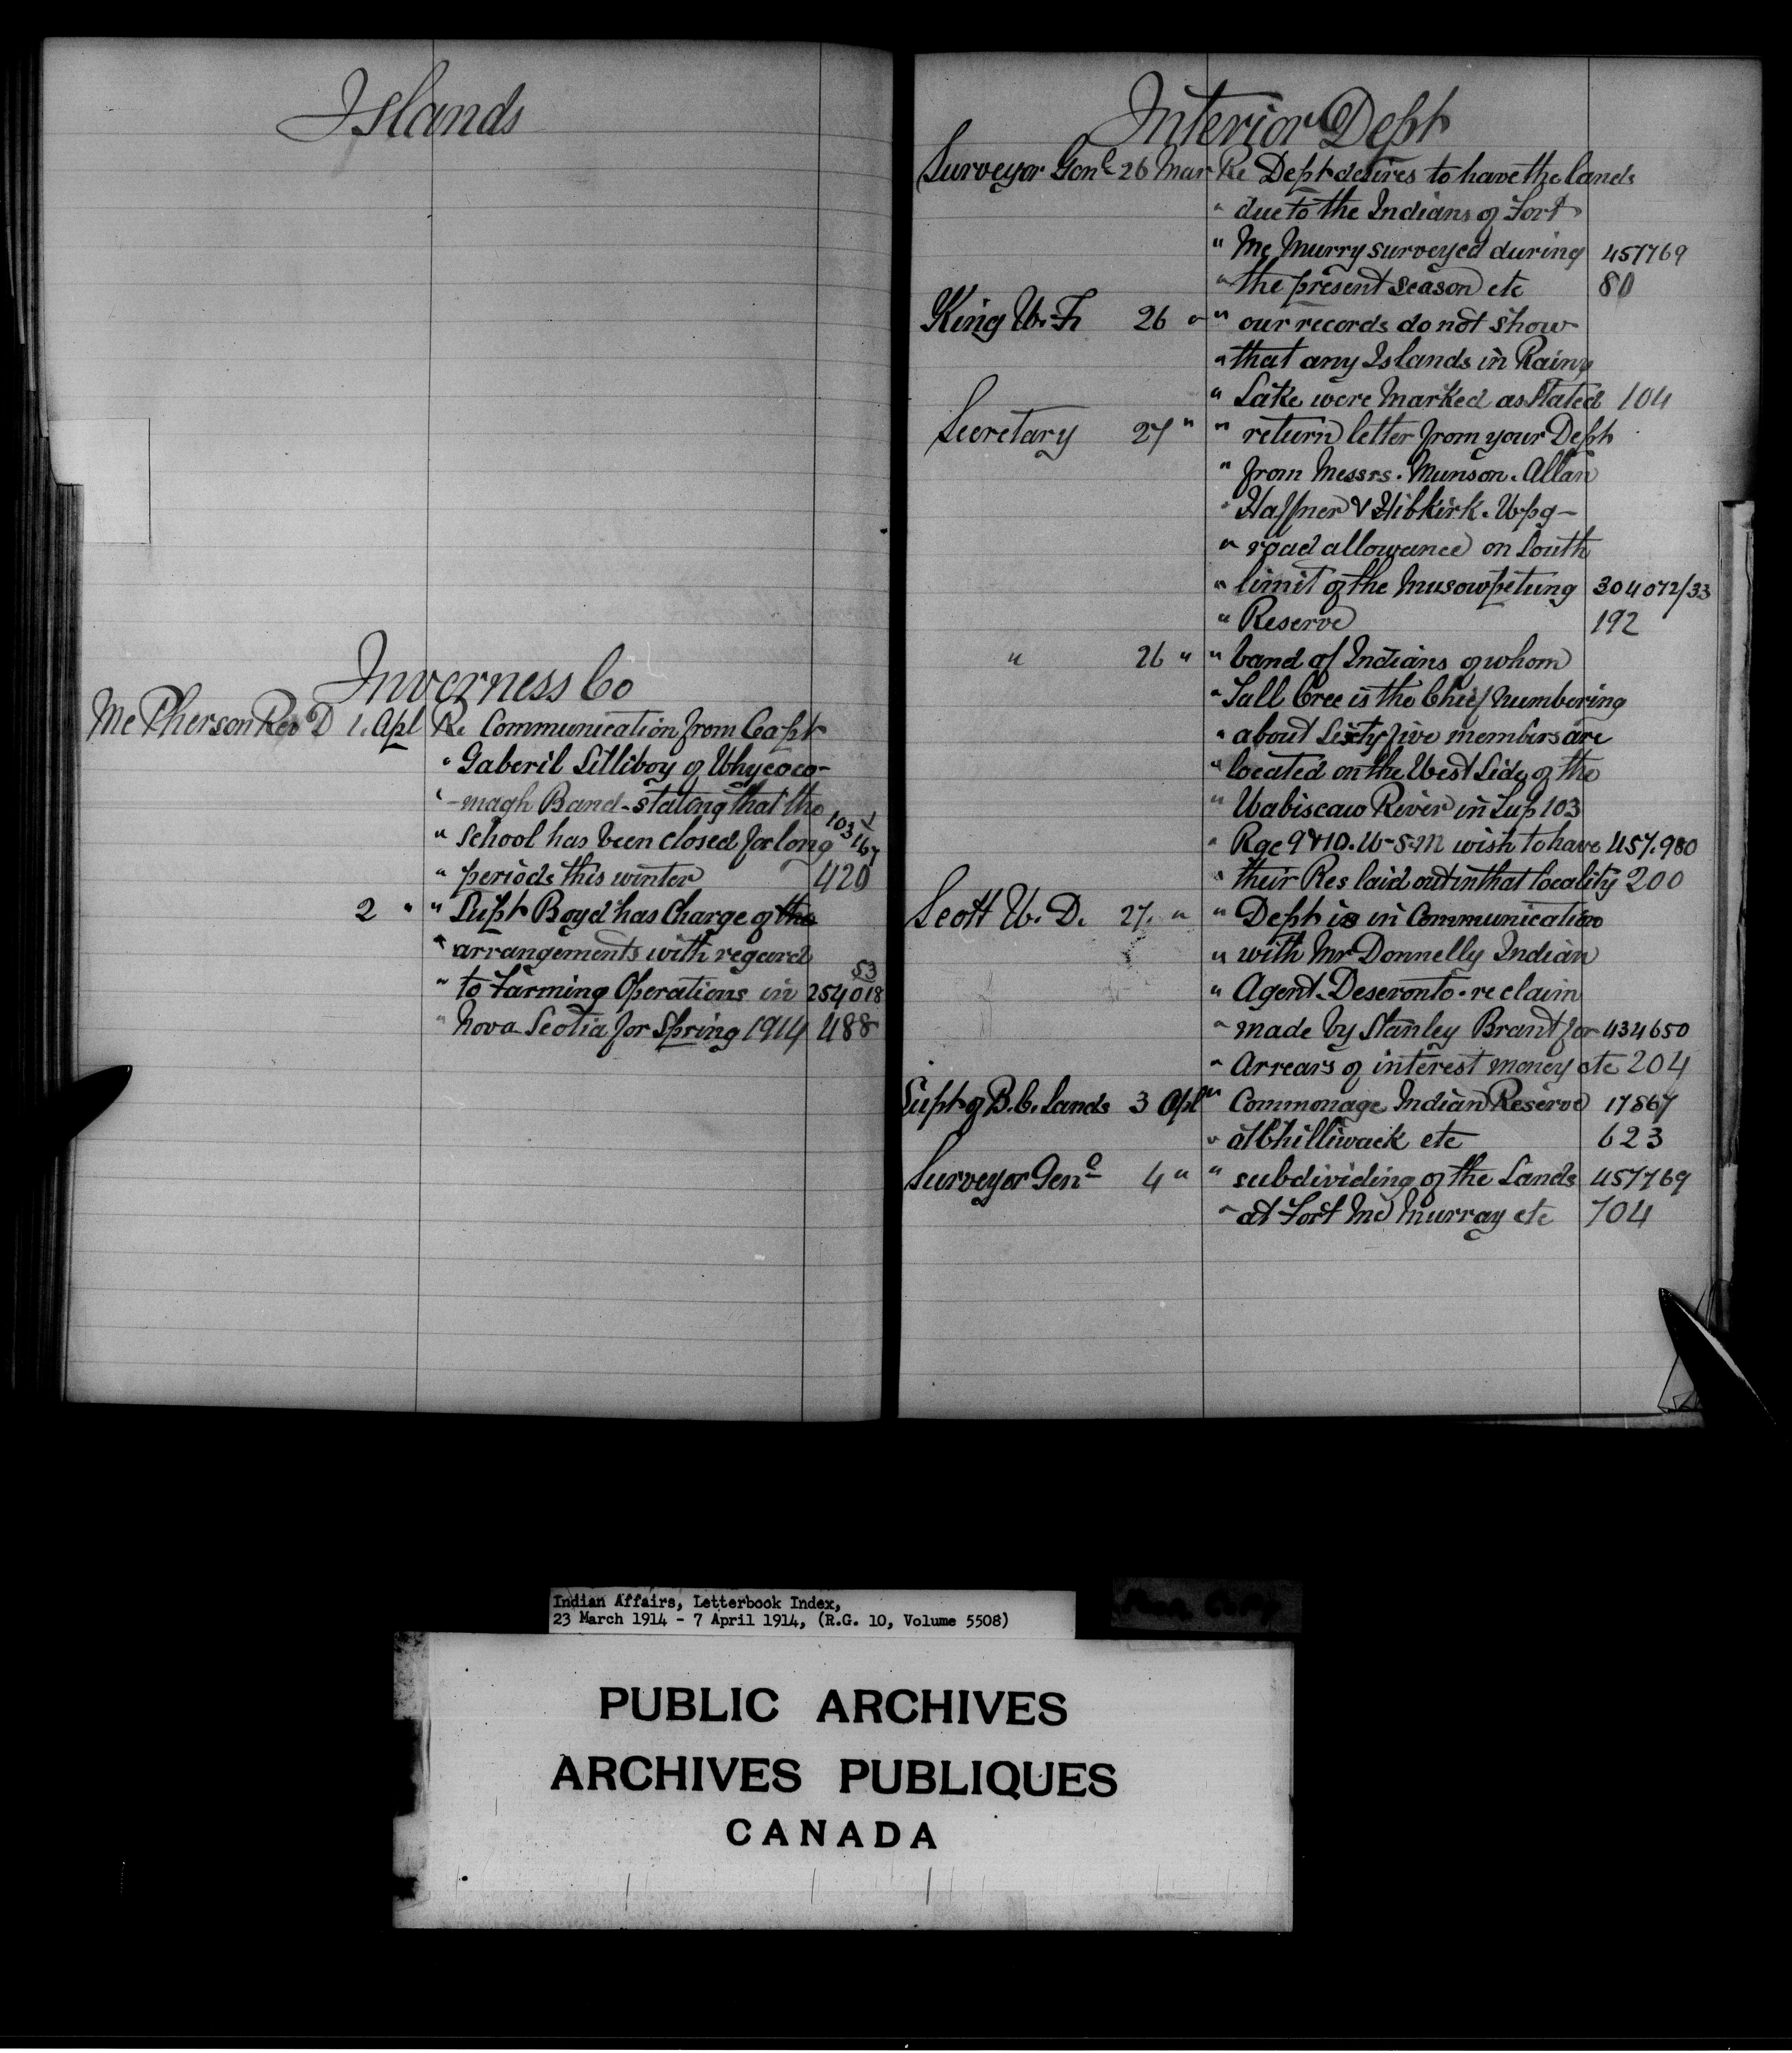 Islands
Inverness Co
McPherson Rev D 1. Apl Re Communication from Capt
" Gaberil Silliboy of Whycoco-
" -magh Band - stating that the
" School has been closed for long 103 1/167
" periods this winter 420
2 " " Supt Boyd has Charge of the
" arrangements with regard
" to Farming Operations in 254018 53
" Nova Scotia for Spring 1914 488
Interior Dept
Surveyor Genl 26 Mar Re Dept desires to have the lands
" due to the Indians of Fort
" Mc Murry surveyed during 457769
" the present season etc 80
King W. F. 26 " " our records do not show
" that any Islands in Rainy
" Lake were Marked as Stated 104
Secretary 27 " " return letter from your Dept
" from Messrs. Munson. Allan
" Haffner & Hibkirk. Wpg -
" road allowance on South
" limit of the Musowpetung 304072/33
" Reserve 192
" 26 " " band of Indians of whom
" Tall Cree is the Chief numbering
" about Sixty five members are
" located on the West Side of the
" Wabiscaw River in Tup 103
" Rge 9 & 10. W-5-M wish to have 457.980
" their Res laid out in that locality 200
Scott W. D. 27. " " Dept is in Communication
" with Mr Donnelly Indian
" Agent. Deseronto - re claim
" made by Stanley Brant for 434650
" Arrears of interest money etc 204
Supt of B.C. Lands 3 Apl " Commonage Indian Reserve 17867
" at Chilliwack etc 623
Surveyor Genl 4 " " subdividing of the Lands 457769
" at Fort Mc Murray etc 704
Indian Affairs, Letterbook Index,
23 March 1914 - 7 April 1914, (R.G. 10, Volume 5508)
PUBLIC ARCHIVES
ARCHIVES PUBLIQUES
CANADA